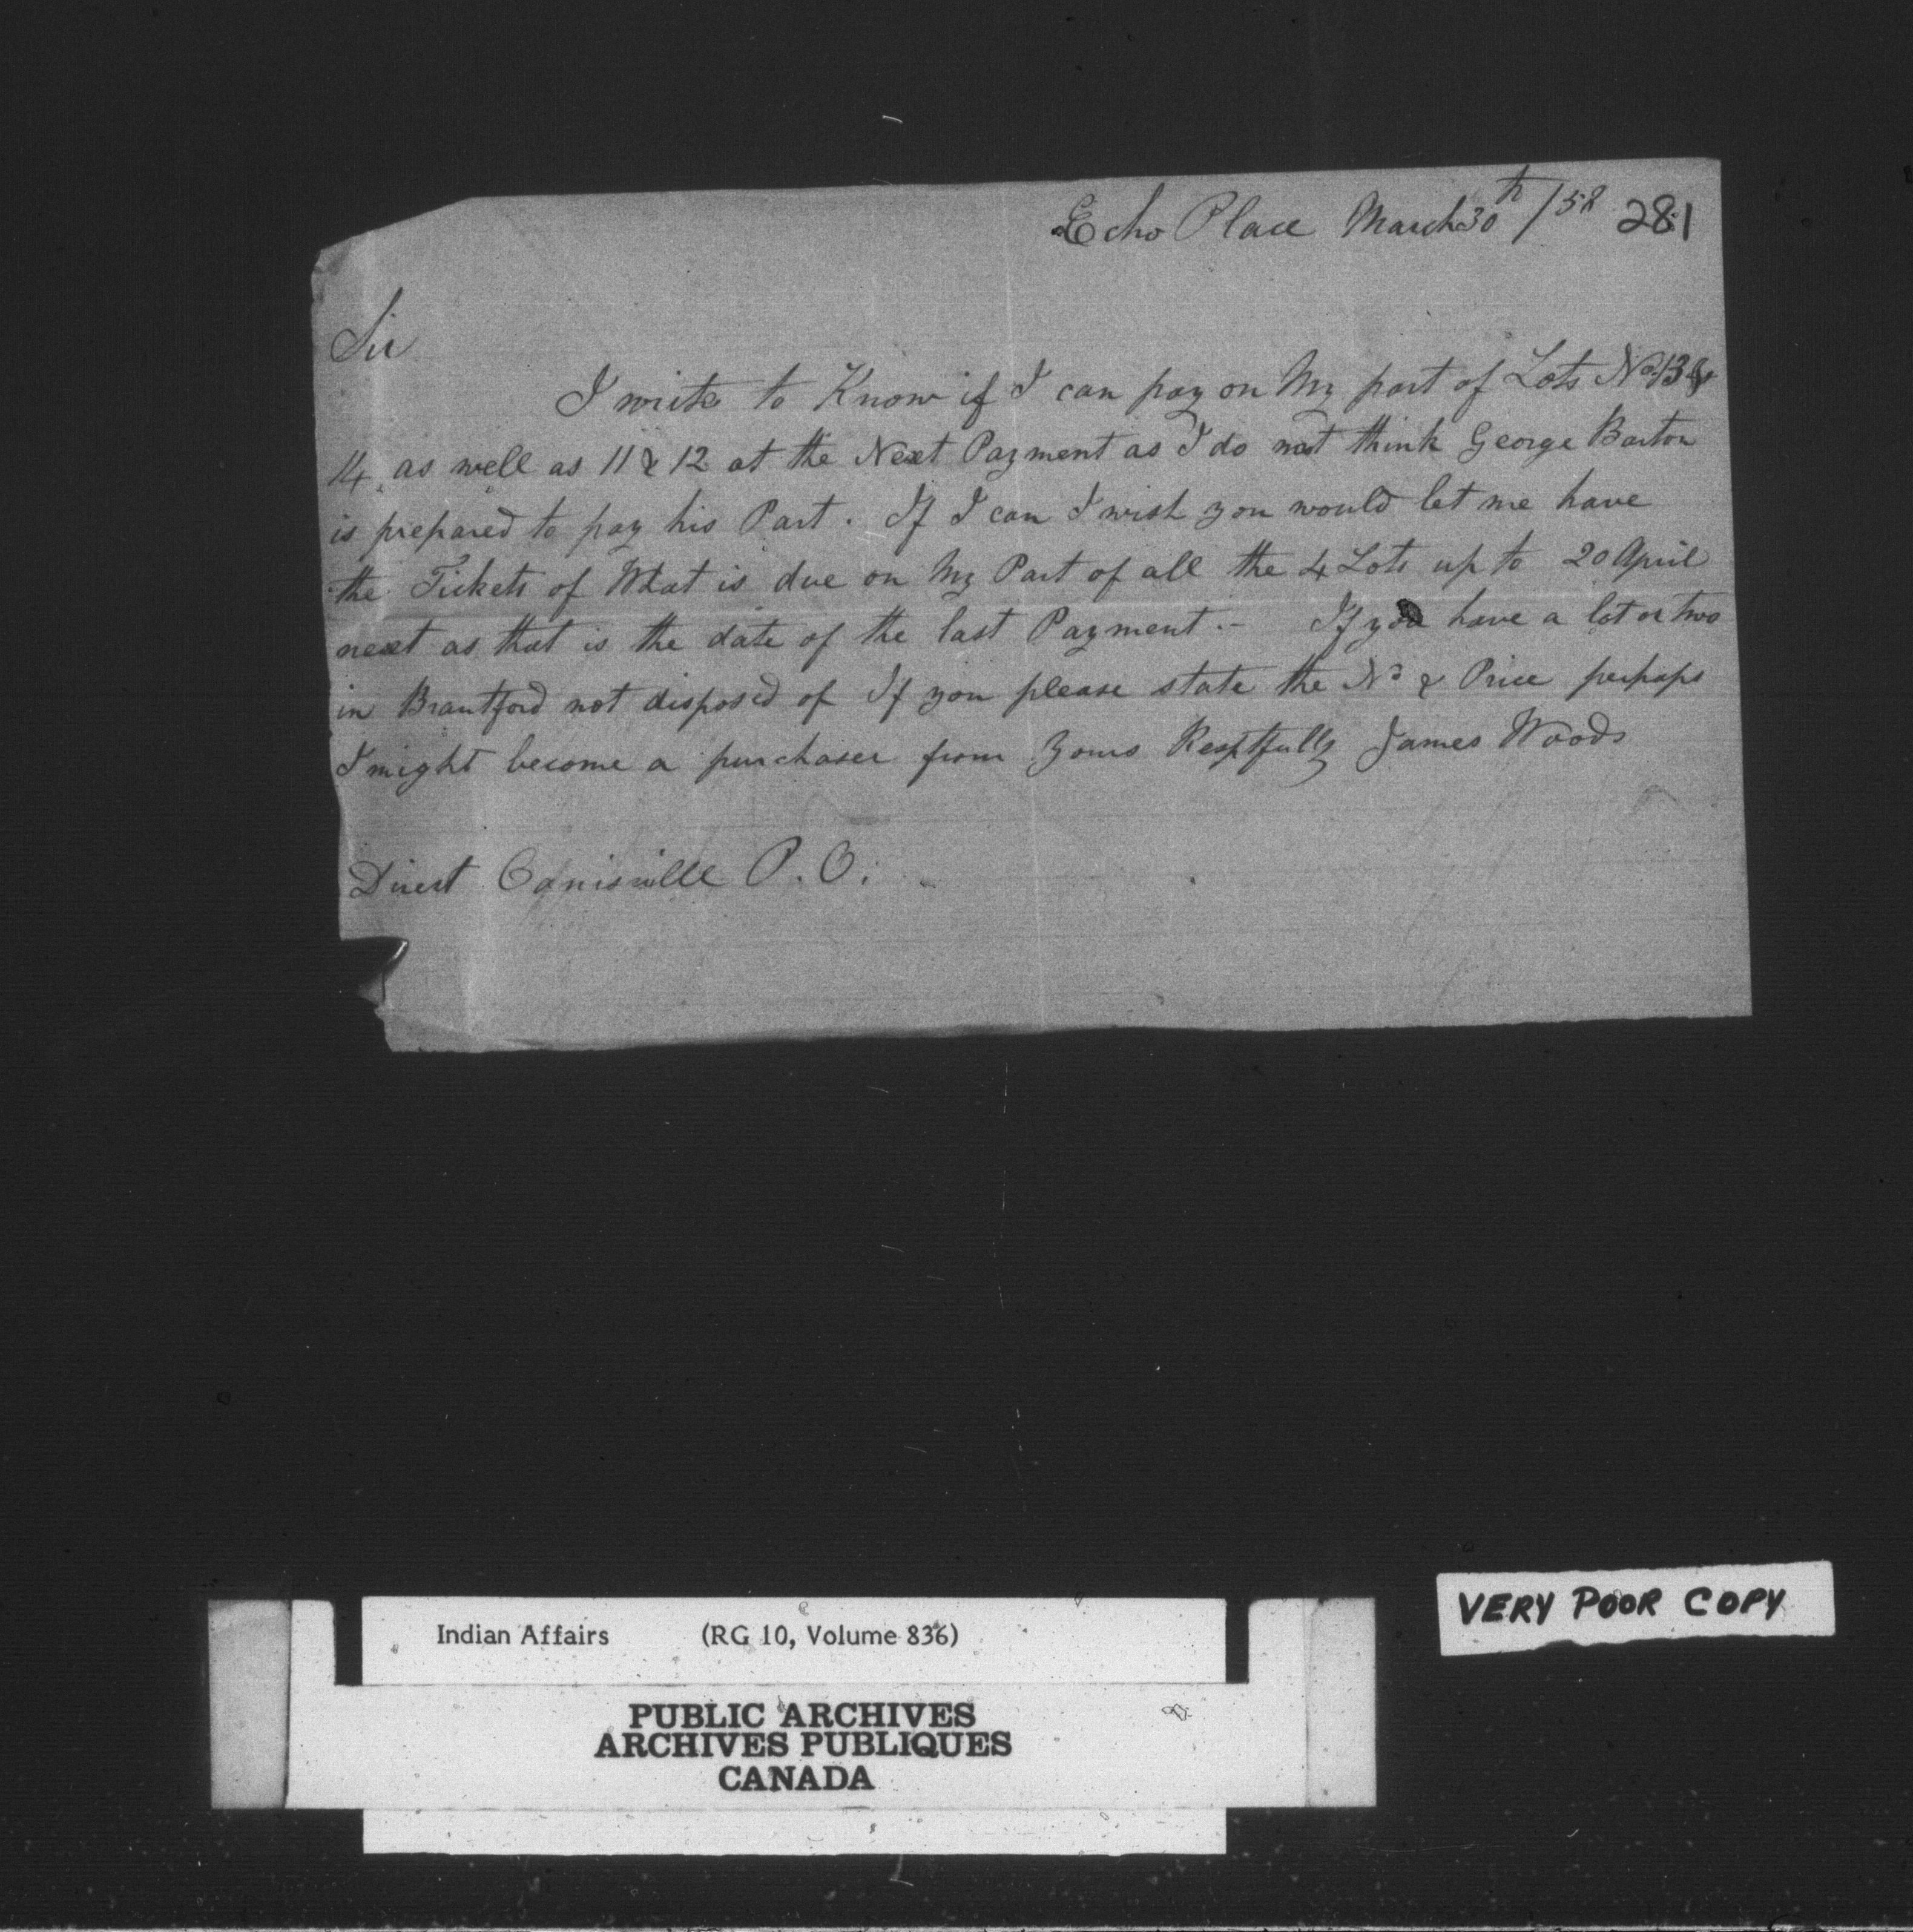 Echo Place March 30th /58 281
Sir
I write to Know if I can pay on My part of Lots No. 13 &
14 as well as 11 & 12 at the Next Payment as I do not think George Barton
is prepared to pay his Part. If I can I wish you would let me have
the Tickets of What is due on My Part of all the 4 Lots up to 20 April
next as that is the date of the last Payment.- If you have a lot or two
in Brantford not disposed of If you please state the No & Price perhaps
I might become a purchaser from Yours Resptfully James Woods
Direct Cainisville P.O.
Indian Affairs (RG 10, Volume 836)
PUBLIC ARCHIVES
ARCHIVES PUBLIQUES
CANADA
VERY POOR COPY